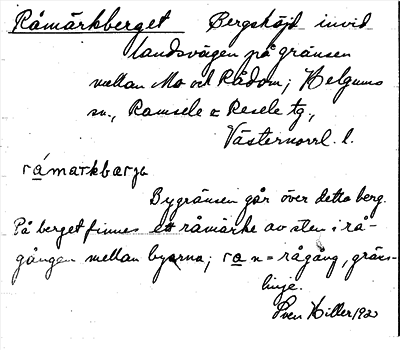 Råmärkberget Bergshöjd invid
landsvägen på gränsen
mellan Mo och Rådom; Helgums
sn., Ramsele & Resele tg,
Västernorrl. l.
råmarkbærjə
Bygränsen går över detta berg.
På berget finnes ett råmärke av sten i rå-
gången mellan byarna; ra n = rågång, gräns-
linje.
Sven Hiller 1920